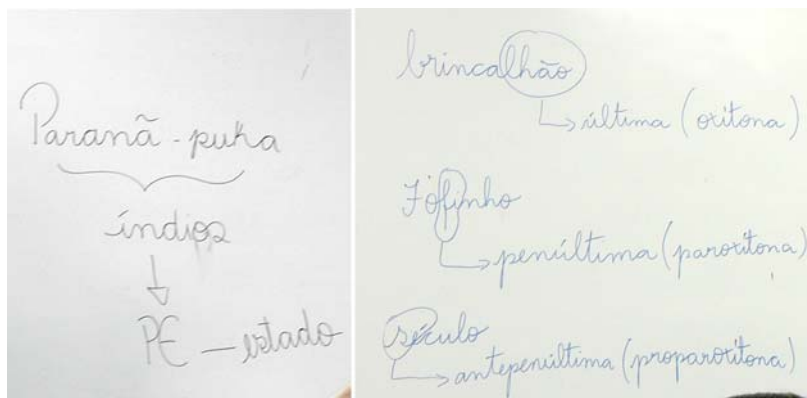 Paranã - puka
índios
PE — estado
brincalhão
última (oxítona)
Fofinho
penúltima (paroxítona)
século
antepenúltima (proparoxítona)